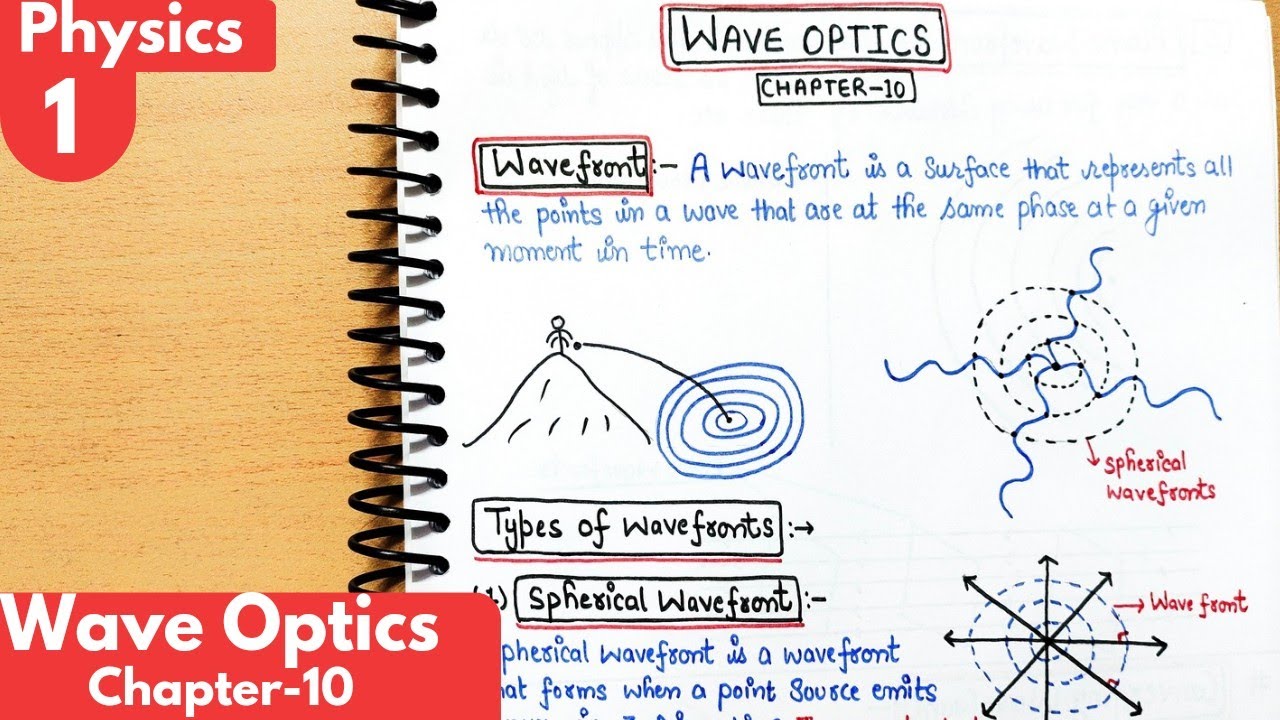 Physics
1
WAVE OPTICS
CHAPTER-10
Wavefront :- A wavefront is a surface that represents all
the points in a wave that are at the same phase at a given
moment in time.
spherical
wavefronts
Types of wavefronts :→
Spherical Wavefront :-
Wave front
pherical wavefront is a wavefront
at forms when a point source emits
Wave Optics
Chapter-10